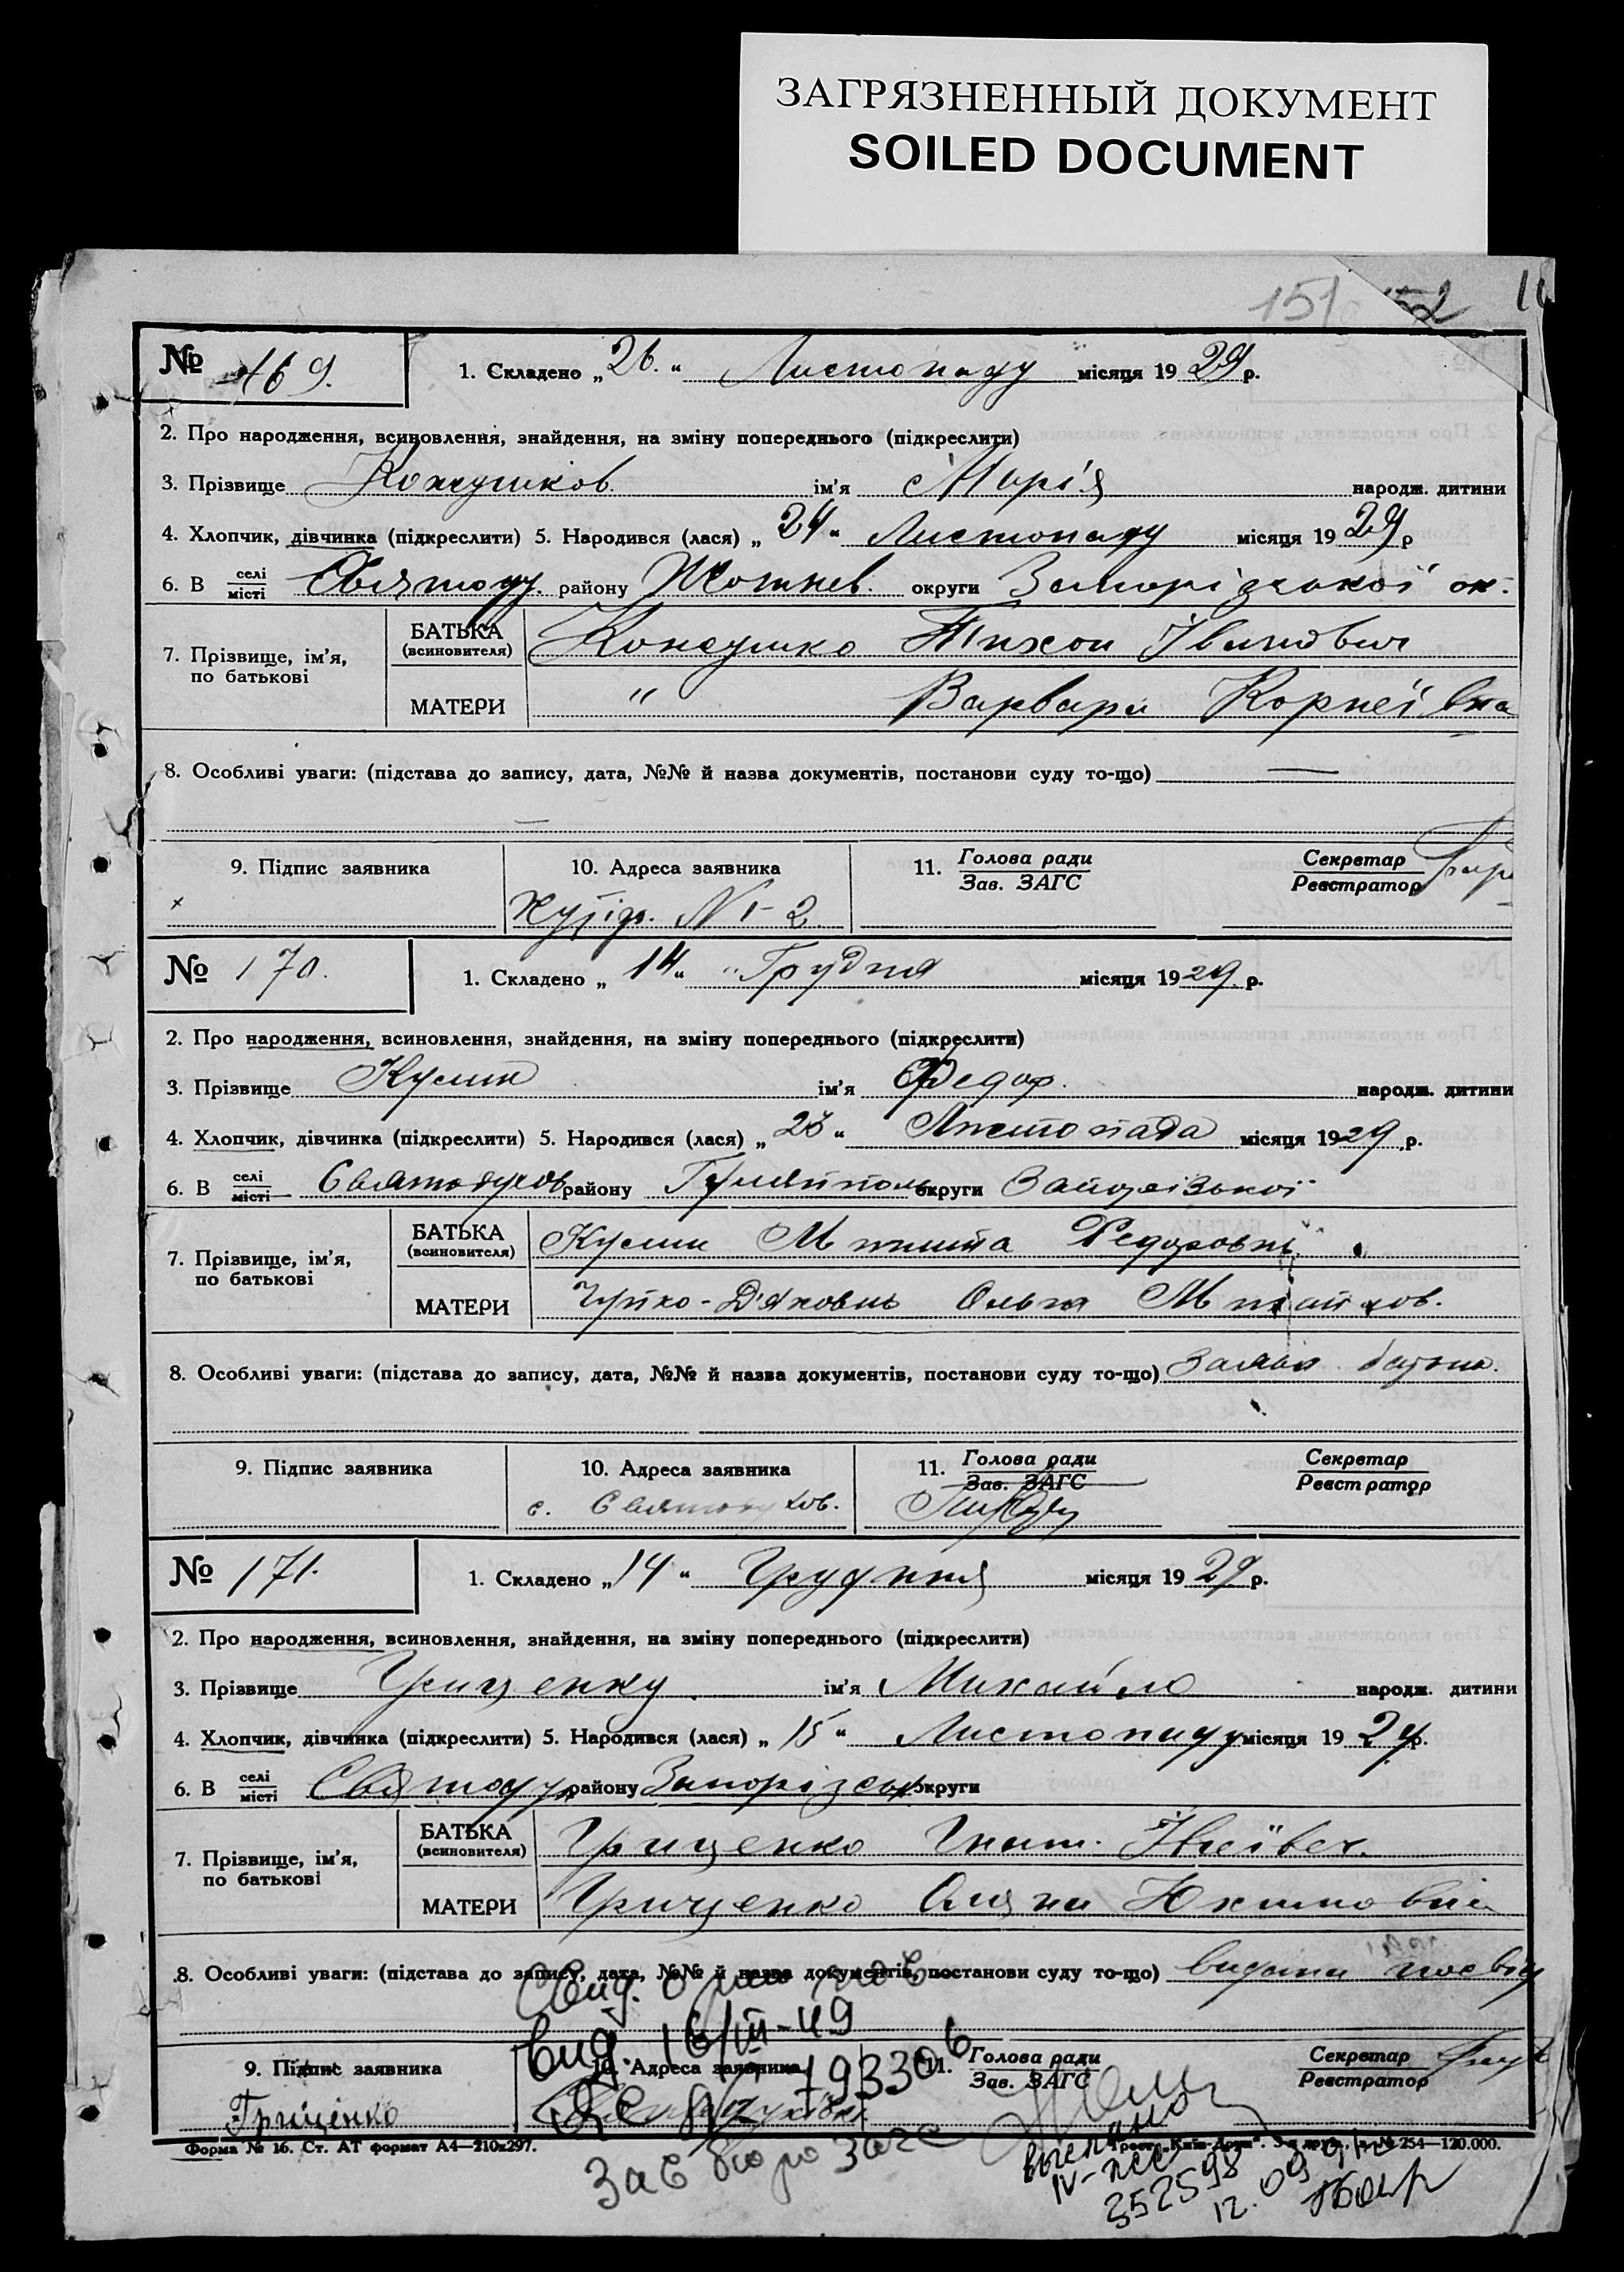 ЗАГРЯЗНЕННЫЙ ДОКУМЕНТ
SOILED DOCUMENT
151
№ 169.
1. Складено „26.“ Листопаду місяця 1929 р.
2. Про народження, всиновлення, знайдення, на зміну попереднього (підкреслити)
3. Прізвище Кожушков. ім'я Марія народж. дитини
4. Хлопчик, дівчинка (підкреслити) 5. Народився (лася) „24“ Листопаду місяця 1929 р
6. В селі місті Святоду. району Жотнев. округи Запорізської ок.
7. Прізвище, ім'я, по батькові
БАТЬКА (всиновителя) Кожушко Тихон Іванович
МАТЕРИ " Варвара Корнеївна
8. Особливі уваги: (підстава до запису, дата, №№ й назва документів, постанови суду то-що) —
9. Підпис заявника
10. Адреса заявника
11. Голова ради Зав. ЗАГС
Секретар Реєстратор
х
Хутір. № 2.
№ 170.
1. Складено „14“ Грудня місяця 1929. р.
2. Про народження, всиновлення, знайдення, на зміну попереднього (підкреслити)
3. Прізвище ім'я Федор. народж. дитини
4. Хлопчик, дівчинка (підкреслити) 5. Народився (лася) „23“ Листопада місяця 1929 р.
6. В селі місті Святодухов району Гуляйполь округи Запорізької
7. Прізвище, ім'я, по батькові
БАТЬКА (всиновителя) Микита Федорович
МАТЕРИ Ольга Михайлов.
8. Особливі уваги: (підстава до запису, дата, №№ й назва документів, постанови суду то-що) Заява батька.
9. Підпис заявника
10. Адреса заявника
11. Голова ради Зав. ЗАГС
Секретар Реєстратор
с. Святодухов.
№ 171.
1. Складено „14“ Грудння місяця 1929 р.
2. Про народження, всиновлення, знайдення, на зміну попереднього (підкреслити)
3. Прізвище Гриценку ім'я Михайло народж. дитини
4. Хлопчик, дівчинка (підкреслити) 5. Народився (лася) „15“ Листопаду місяця 1929 р.
6. В селі місті Святодух району Запорізськ округи
7. Прізвище, ім'я, по батькові
БАТЬКА (всиновителя) Гриценко Гнат.
МАТЕРИ Гриценко Юхимовна
8. Особливі уваги: (підстава до запису, дата, №№ й назва документів, постанови суду то-що) видана посвід
Свид. о
выд. 16/III-49
793306
9. Підпис заявника
10. Адреса заявника
11. Голова ради Зав. ЗАГС
Секретар Реєстратор
Гриценко
Форма № 16. Ст. АТ формат А4—210х297.
Трест „Київ-Друк“. № 254—120.000.
Зав бюро загс
352598
12.09